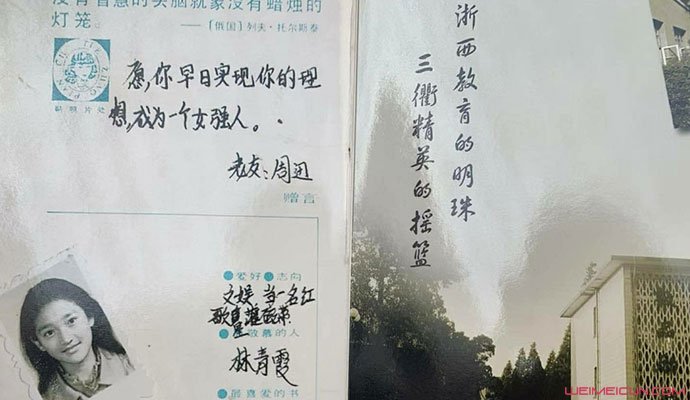 没有智慧的头脑就象没有蜡烛的
灯笼。 ——〔俄国〕列夫·托尔斯泰
贴照片处
愿,你早日实现你的理
想,成为一个女强人。
老友:周迅
赠言
●爱好●志向
文娱 当一名红
歌星
敬慕的人
林青霞
●最喜爱的书
浙西教育的明珠
三衢精英的摇篮
WEIMEICUN.COM